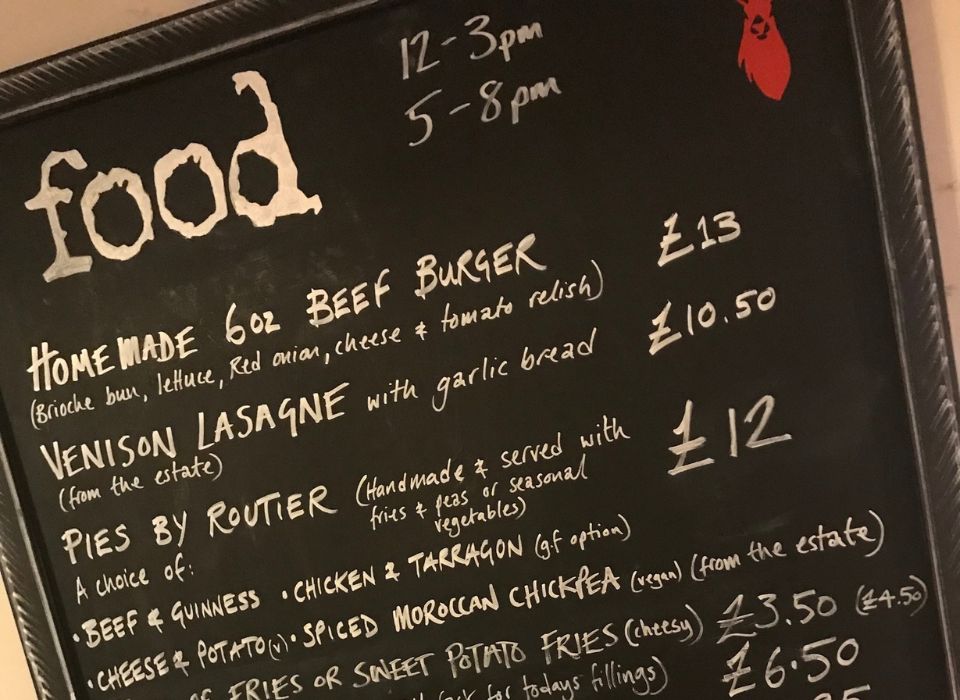 12-3pm
5-8pm
food
HOMEMADE 6oz BEEF BURGER £13
(Brioche bun, lettuce, Red onion, cheese & tomato relish)
VENISON LASAGNE with garlic bread £10.50
(from the estate)
PIES BY ROUTIER (Handmade & served with £12
fries & peas or seasonal
vegetables)
A choice of:
• BEEF & GUINNESS • CHICKEN & TARRAGON (g.f option)
• CHEESE & POTATO (v) • SPICED MOROCCAN CHICKPEA (vegan) (from the estate)
OF FRIES OR SWEET POTATO FRIES (cheesy) £3.50 (£4.50)
for todays fillings) £6.50